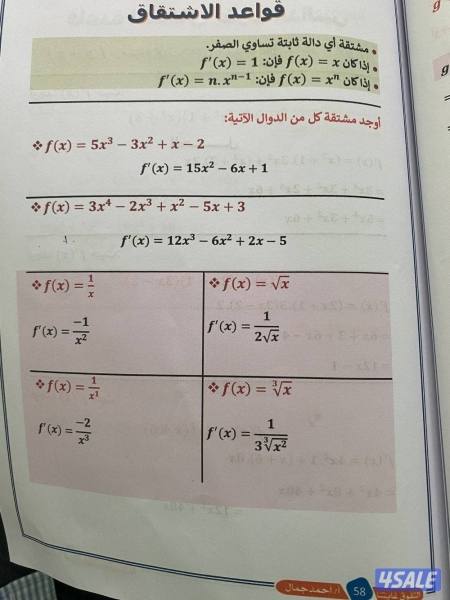 قواعد الاشتقاق
• مشتقة أي دالة ثابتة تساوي الصفر.
• إذا كان f(x) = x فإن: f′(x) = 1
• إذا كان f(x) = xⁿ فإن: f′(x) = n.xⁿ⁻¹
أوجد مشتقة كل من الدوال الآتية:
❖ f(x) = 5x³ − 3x² + x − 2
f′(x) = 15x² − 6x + 1
❖ f(x) = 3x⁴ − 2x³ + x² − 5x + 3
f′(x) = 12x³ − 6x² + 2x − 5
❖ f(x) = 1/x
f′(x) = −1/x²
❖ f(x) = √x
f′(x) = 1/(2√x)
❖ f(x) = 1/x¹
f′(x) = −2/x³
❖ f(x) = ∛x
f′(x) = 1/(3∛x²)
أ/ احمد جمال
58
4SALE